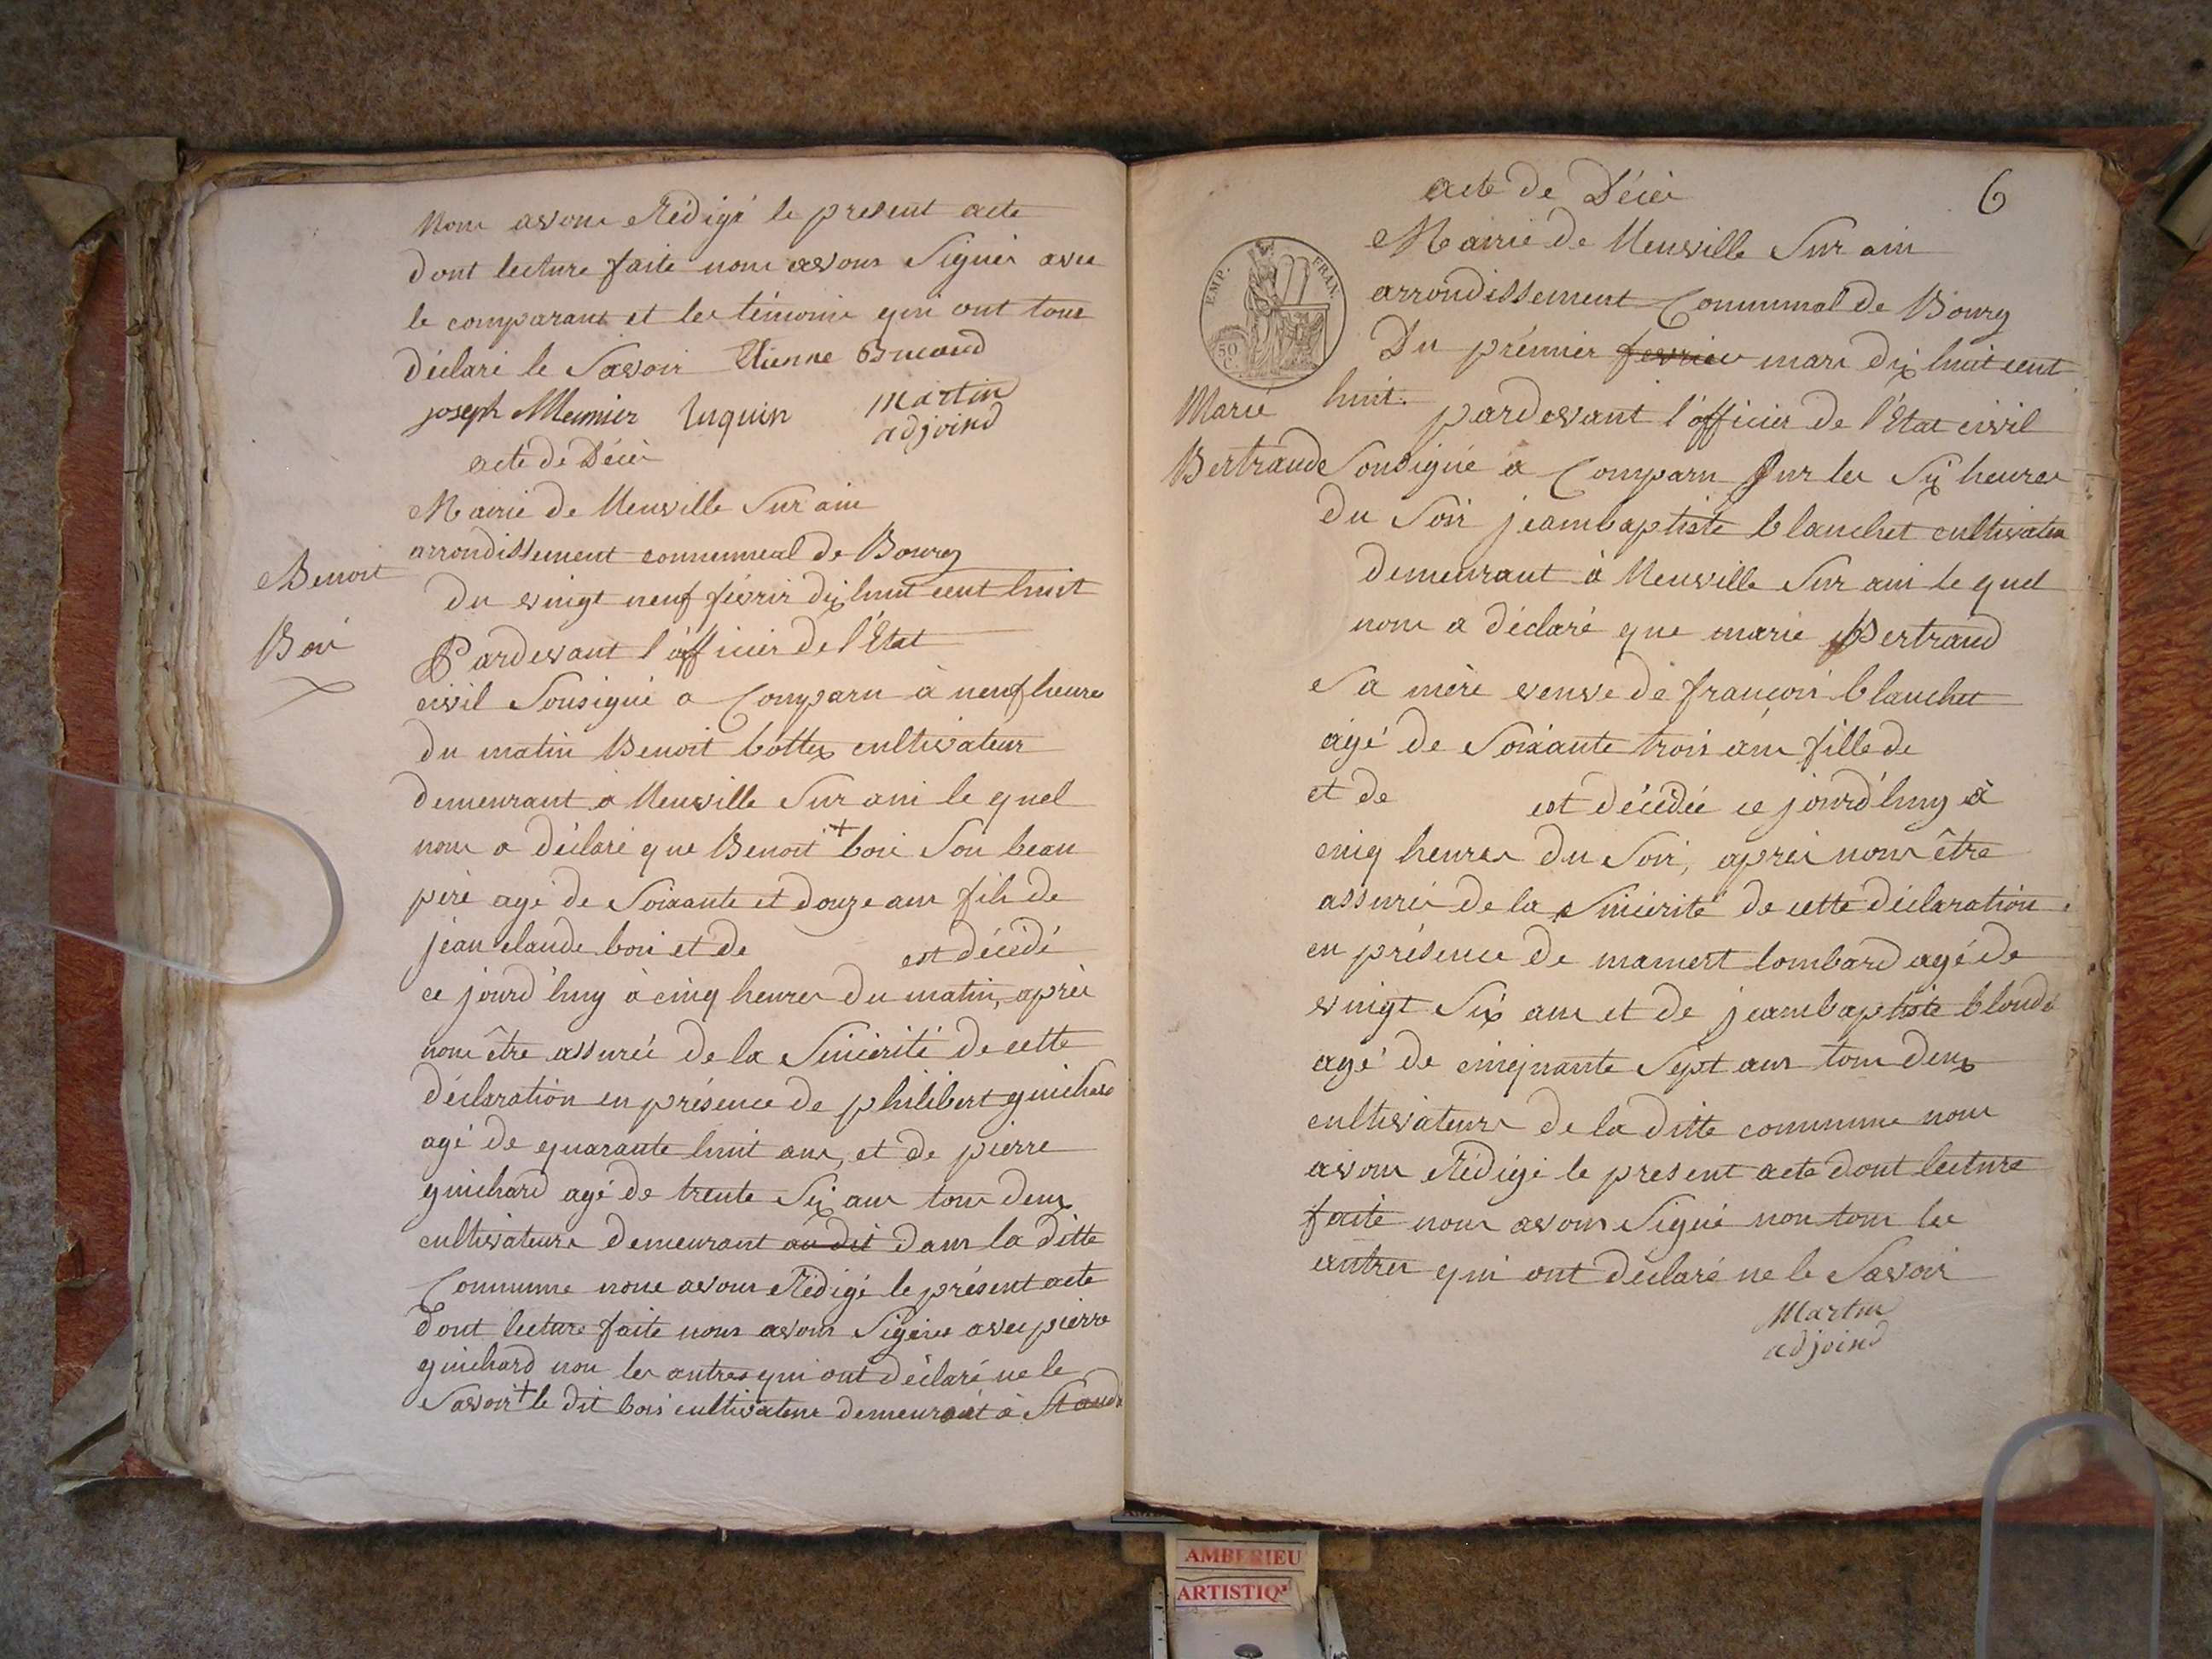 nous avons Rédigé le present acte
dont lecture faite nous avons Signés avec
le comparant et les témoins qui ont tous
déclaré le Savoir Etienne
joseph Meunier Luquin martin
adjoind
acte de Décès
Mairie de Neuville Sur ain
arrondissement communal de Bourg
Benoit
Bois
du vingt neuf févrir dix huit cent huit
Pardevant l'officier de l'Etat
civil Sousigné a Comparu à neuf heures
du matin Benoit bottex cultivateur
demeurant à Neuville Sur ain le quel
nous a déclaré que Benoit + bois Son beau
père agé de Soixante et douze ans fils de
jean claude bois et de est décédé
ce jourd'huy à cinq heures du matin, après
nous être assurés de la Sincérité de cette
déclaration en présence de philibert guichard
agé de quarante huit ans, et de pierre
guichard agé de trente Six ans tous deux
cultivateurs demeurant au dit dans la ditte
Commune nous avons Rédigé le présent acte
dont lecture faite nous avons Signés avec pierre
guichard non les autres qui ont déclaré ne le
Savoir + le dit bois cultivateur demeurant à
6
acte de Décès
Mairie de Neuville Sur ain
EMP. FRAN.
50 C.
arrondissement Communal de Bourg
Du prémier fevrier mars dix huit cent
huit. pardevant l'officier de l'Etat civil
Marie
Bertrande
Sousigné a Comparu Sur les Six heures
du Soir jeambaptiste blanchet cultivateur
demeurant à Neuville Sur ain le quel
nous a déclaré que marie Bertrand
Sa mère veuve de françois blanchet
agé de Soixante trois ans fille de
et de est décédée ce jourd'huy à
cinq heures du Soir, après nous être
assurés de la Sincérité de cette déclaration
en présence de mamert lombard agé de
vingt Six ans et de jeambaptiste
agé de cinquante Sept ans tous deux
cultivateurs de la ditte commune nous
avons Rédigé le present acte dont lecture
faite nous avons Signé non tous les
autres qui ont déclaré ne le Savoir
Martin
adjoind
AMBERIEU
ARTISTIQ